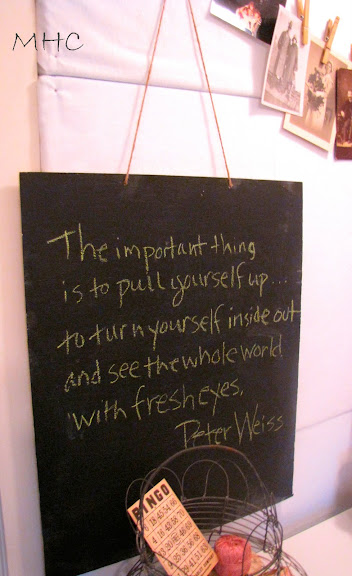 MHC
The important thing
is to pull yourself up...
to turn yourself inside out
and see the whole world
with fresh eyes.
Peter Weiss
BINGO